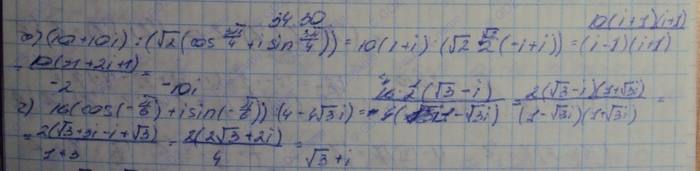 34.30
б) (10+10i) : (√2(cos 3π/4 + i sin 3π/4)) = 10(1+i) : (√2 √2/2 (-1+i)) = 10(i+1)(i+1) / (i-1)(i+1)
= 10(-1+2i+1) / -2 = -10i
г) 16(cos(-π/6) + i sin(-π/6)) : (4-4√3i) = 16 · 1/2 (√3-i) / 4(1-√3i) = 2(√3-i)(1+√3i) / (1-√3i)(1+√3i) =
= 2(√3+3i-i+√3) / 1+3 = 2(2√3+2i) / 4 = √3+i